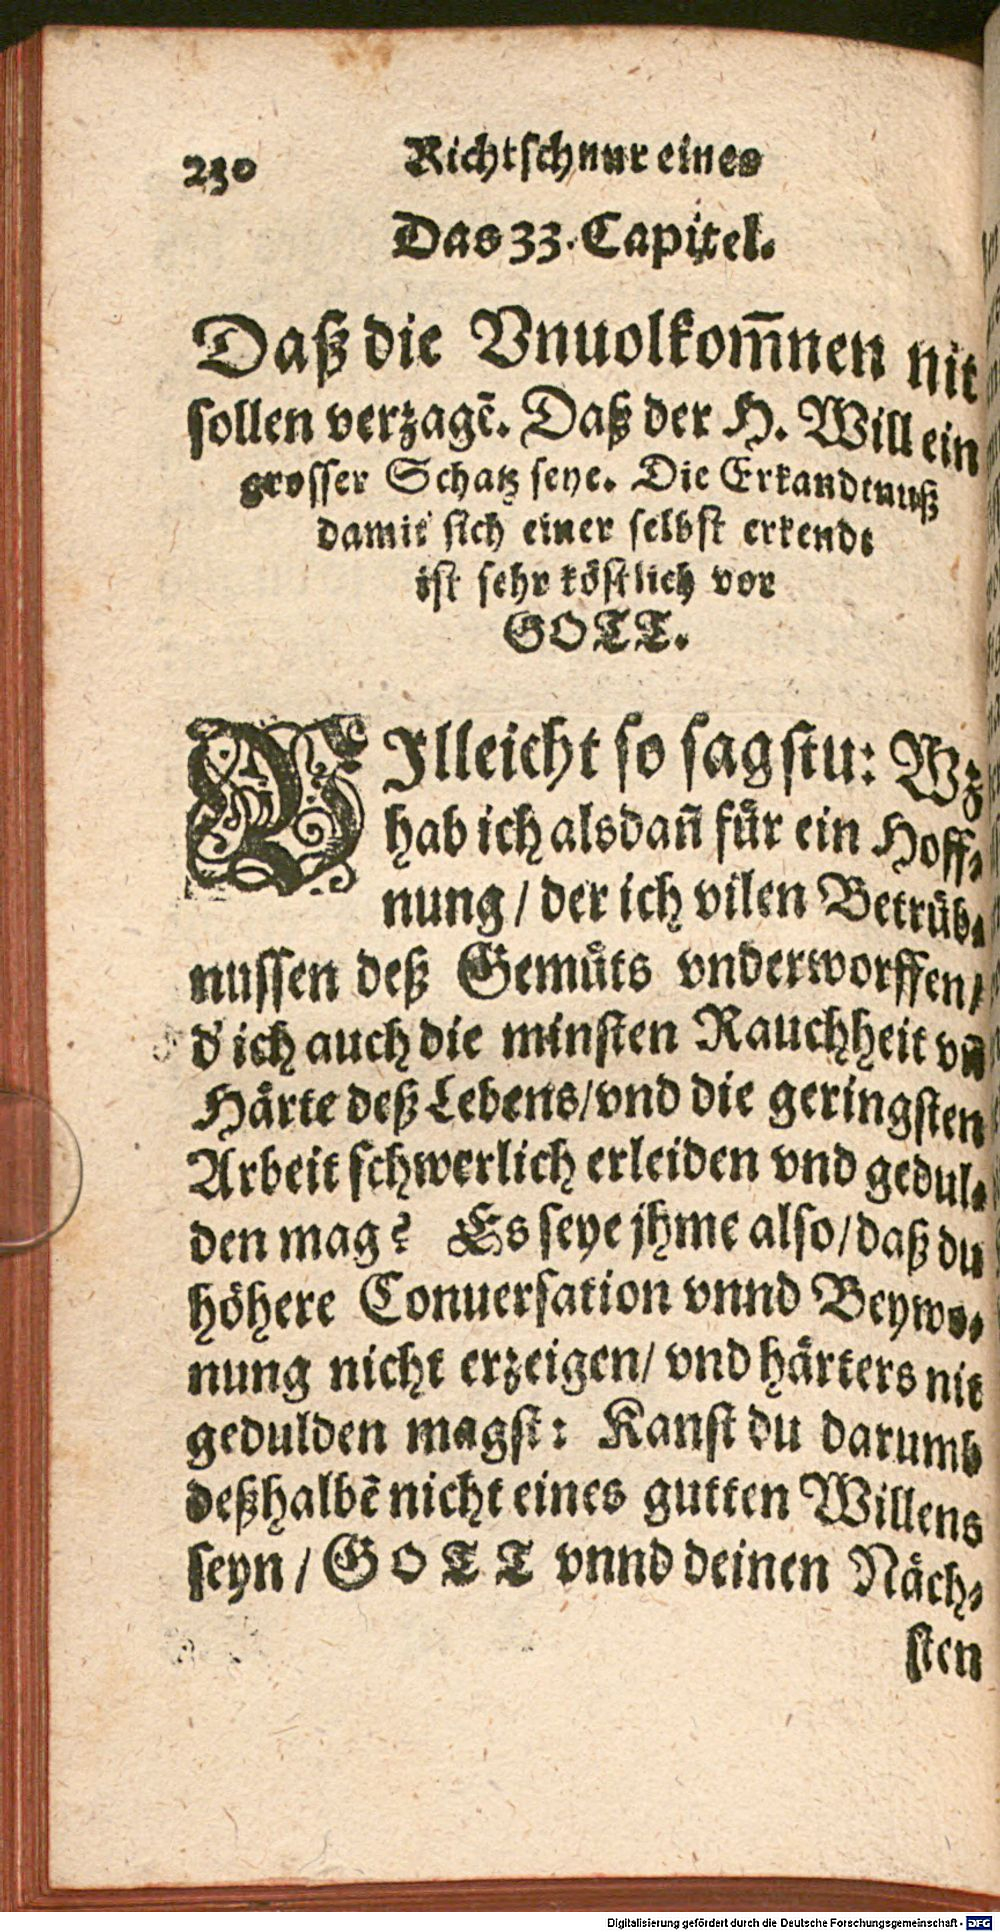 230 Richtschnur eines
Das 33. Capitel.
Daß die Vnuolkom̃nen nit
sollen verzagẽ. Daß der H. Will ein
grosser Schatz seye. Die Erkandtnuß
damit sich einer selbst erkendt
ist sehr köstlich vor
GOTT.
VIlleicht so sagstu: Wz
hab ich alsdañ für ein Hoff-
nung / der ich vilen Betrüb-
nussen deß Gemüts vnderworffen /
d' ich auch die minsten Rauchheit vñ
Härte deß Lebens / vnd die geringsten
Arbeit schwerlich erleiden vnd gedul-
den mag? Es seye jhme also / daß du
höhere Conuersation vnnd Beywo-
nung nicht erzeigen / vnd härters nit
gedulden magst: Kanst du darumb
deßhalbẽ nicht eines gutten Willens
seyn / GOTT vnnd deinen Näch-
sten
Digitalisierung gefördert durch die Deutsche Forschungsgemeinschaft - DFG